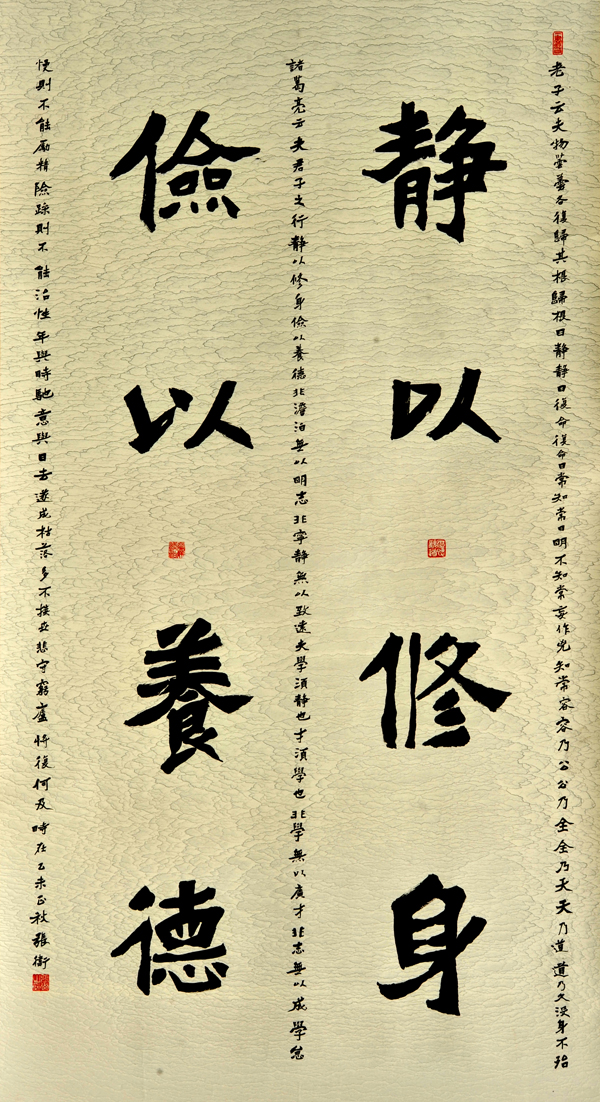 老子云夫物芸芸各復歸其根歸根曰静静曰復命復命曰常知常曰明不知常妄作兇知常容容乃公公乃全全乃天天乃道道乃久没身不殆
静以修身
諸葛亮云夫君子之行静以修身儉以養德非澹泊無以明志非寧静無以致遠夫學須静也才須學也非學無以廣才非志無以成學怠
儉以養德
慢則不能勵精險躁則不能治性年與時馳意與日去遂成枯落多不接世悲守窮廬將復何及時在乙未正秋張